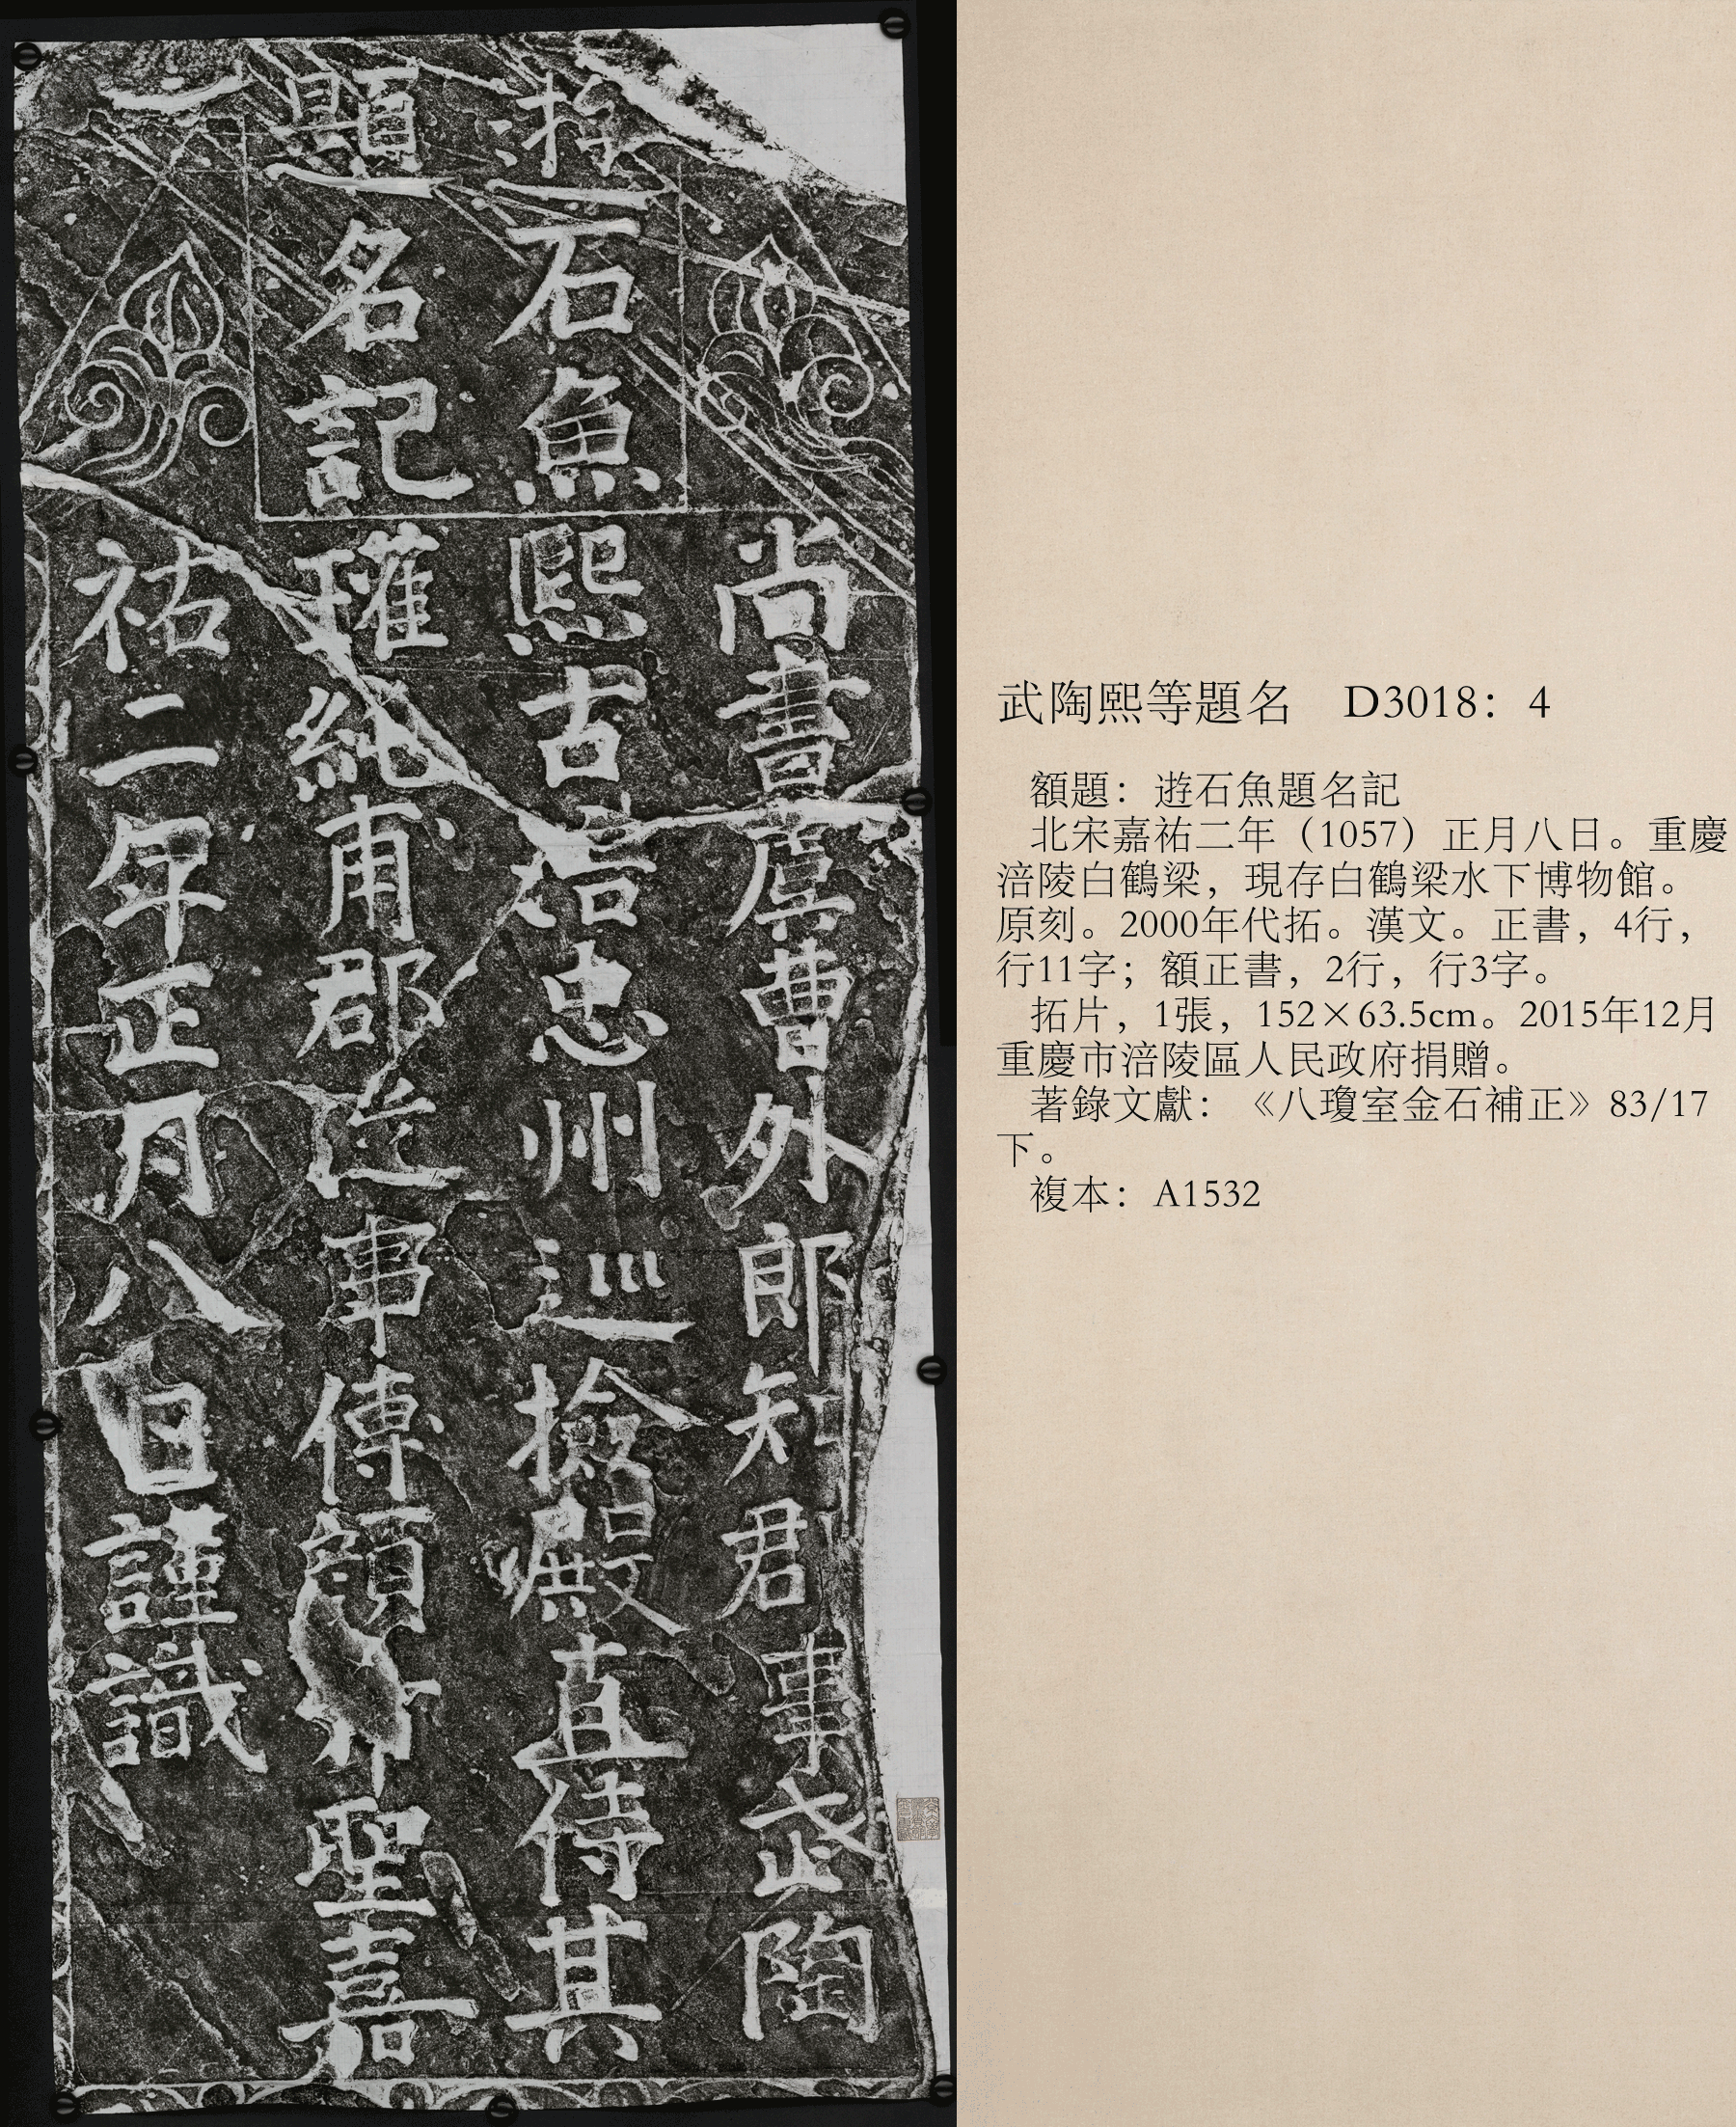 遊石魚
題名記
尚書虞曹外郎知郡事武陶
熙古偕忠州巡撿殿直侍其
瓘純甫郡從事傅顏希聖嘉
祐二年正月八日謹識
武陶熙等題名　D3018：4
額題：遊石魚題名記
北宋嘉祐二年（1057）正月八日。重慶
涪陵白鶴梁，現存白鶴梁水下博物館。
原刻。2000年代拓。漢文。正書，4行，
行11字；額正書，2行，行3字。
拓片，1張，152×63.5cm。2015年12月
重慶市涪陵區人民政府捐贈。
著錄文獻：《八瓊室金石補正》83/17
下。
複本：A1532